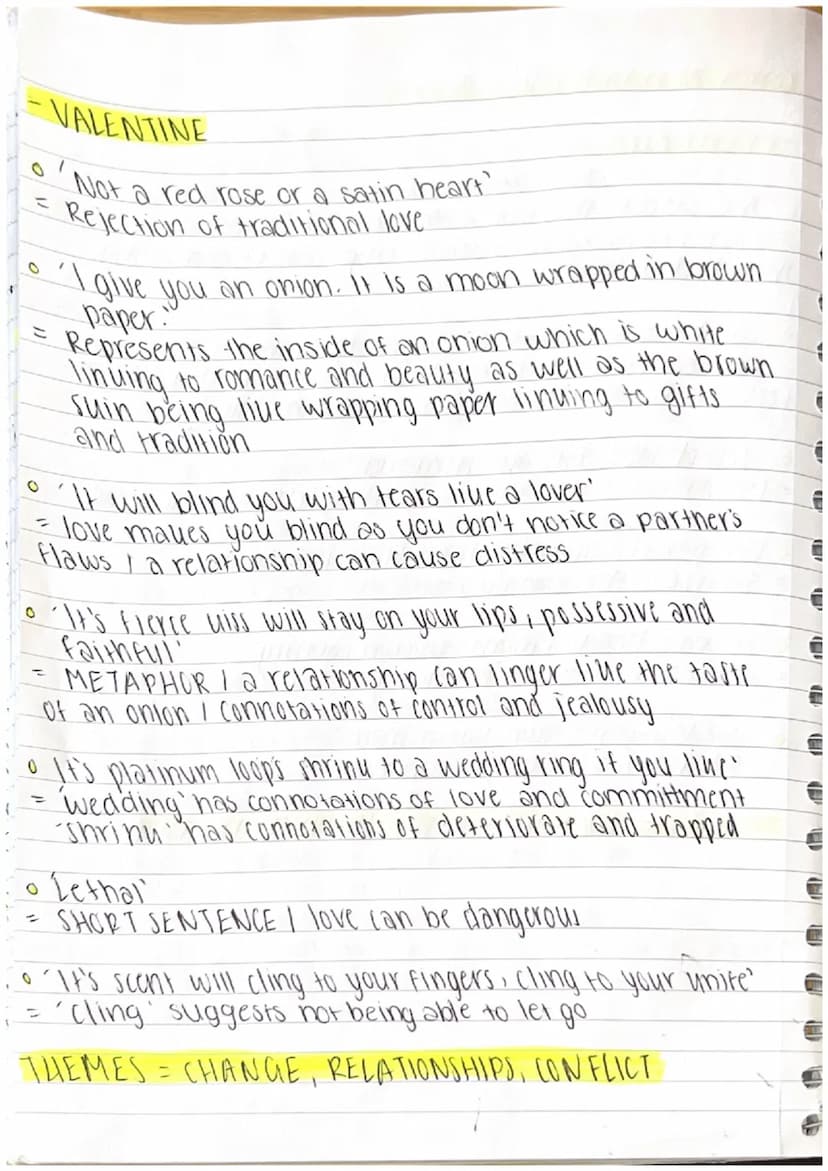 - VALENTINE
'Not a red rose or a satin heart'
= Rejection of traditional love
'I give you an onion. It is a moon wrapped in brown
paper.'
= Represents the inside of an onion which is white
linking to romance and beauty as well as the brown
skin being like wrapping paper linking to gifts
and tradition
'It will blind you with tears like a lover'
= love makes you blind as you don't notice a partner's
flaws / a relationship can cause distress
'It's fierce kiss will stay on your lips, possessive and
faithful'
= METAPHOR / a relationship can linger like the taste
of an onion / connotations of control and jealousy
It's platinum loops shrink to a wedding ring if you like'
= 'wedding' has connotations of love and committment
'shrink' has connotations of deteriorate and trapped
'Lethal'
= SHORT SENTENCE / love can be dangerous
'It's scent will cling to your fingers, cling to your knife'
= 'cling' suggests not being able to let go
THEMES = CHANGE, RELATIONSHIPS, CONFLICT